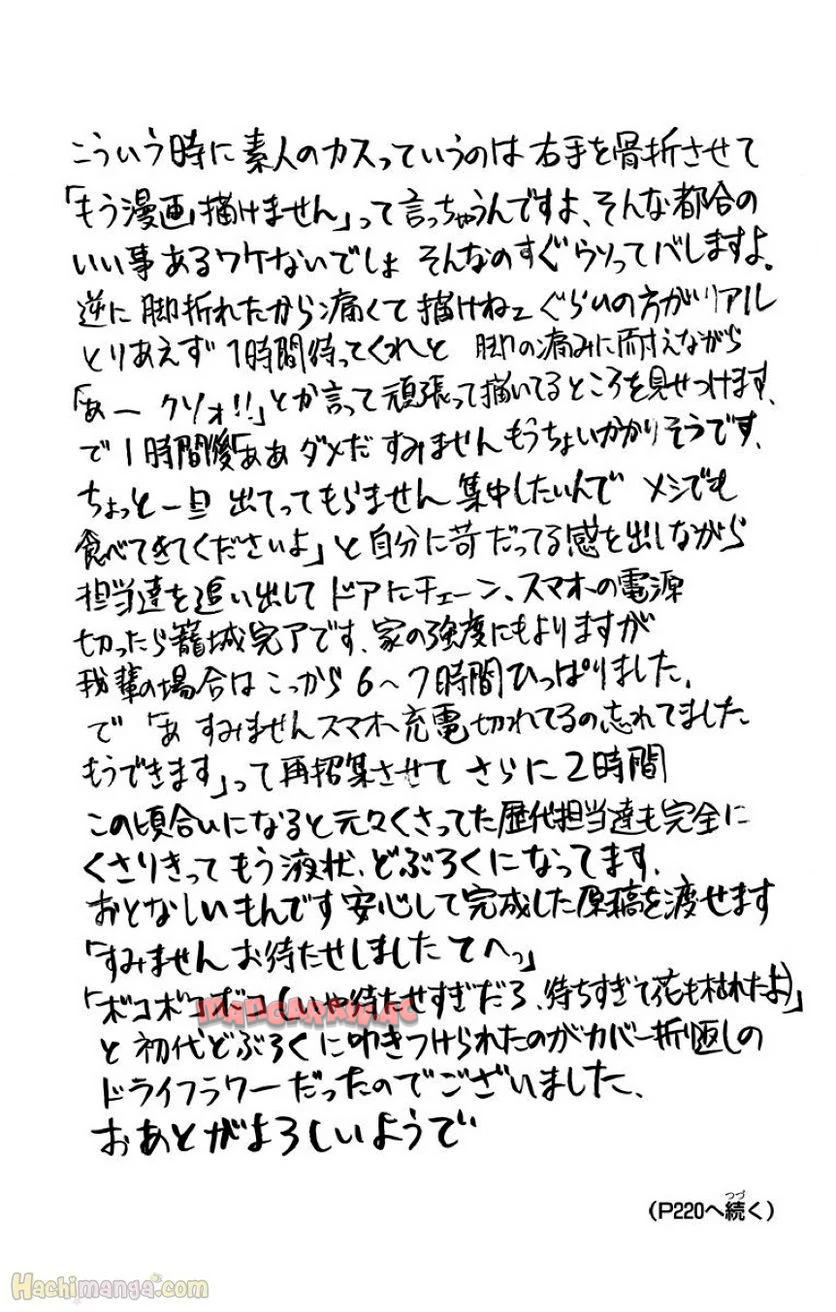 こういう時に素人のカスっていうのは右手を骨折させて
「もう漫画描けません」って言っちゃうんですよ、そんな都合の
いい事あるワケないでしょ そんなのすぐウソってバレますよ。
逆に脚折れたから痛くて描けねェぐらいの方がリアル
とりあえず1時間待ってくれと 脚の痛みに耐えながら
「あー クソォ!!」とか言って頑張って描いてるところを見せつけます、
で1時間後「ああダメだ すみませんもうちょいかかりそうです、
ちょっと一旦 出てってもらません 集中したいんで メシでも
食べてきてくださいよ」と自分に苛だってる感を出しながら
担当達を追い出してドアにチェーン、スマホの電源
切ったら籠城完了です、家の強度にもよりますが
我輩の場合はこっから6〜7時間ひっぱりました、
で「あ すみませんスマホ充電切れてるの忘れてました
もうできます」って再招集させて さらに2時間
この頃合いになると元々くさってた歴代担当達も完全に
くさりきってもう液状、どぶろくになってます、
おとなしいもんです安心して完成した原稿を渡せます
「すみません お待たせしました てへっ」
「ボコボコボコ(いや待たせすぎだろ、待ちすぎて花も枯れたよ)」
と初代どぶろくに叩きつけられたのがカバー折り返しの
ドライフラワーだったのでございました、
おあとがよろしいようで
(P220へ続く)
つづ
Hachimanga.com